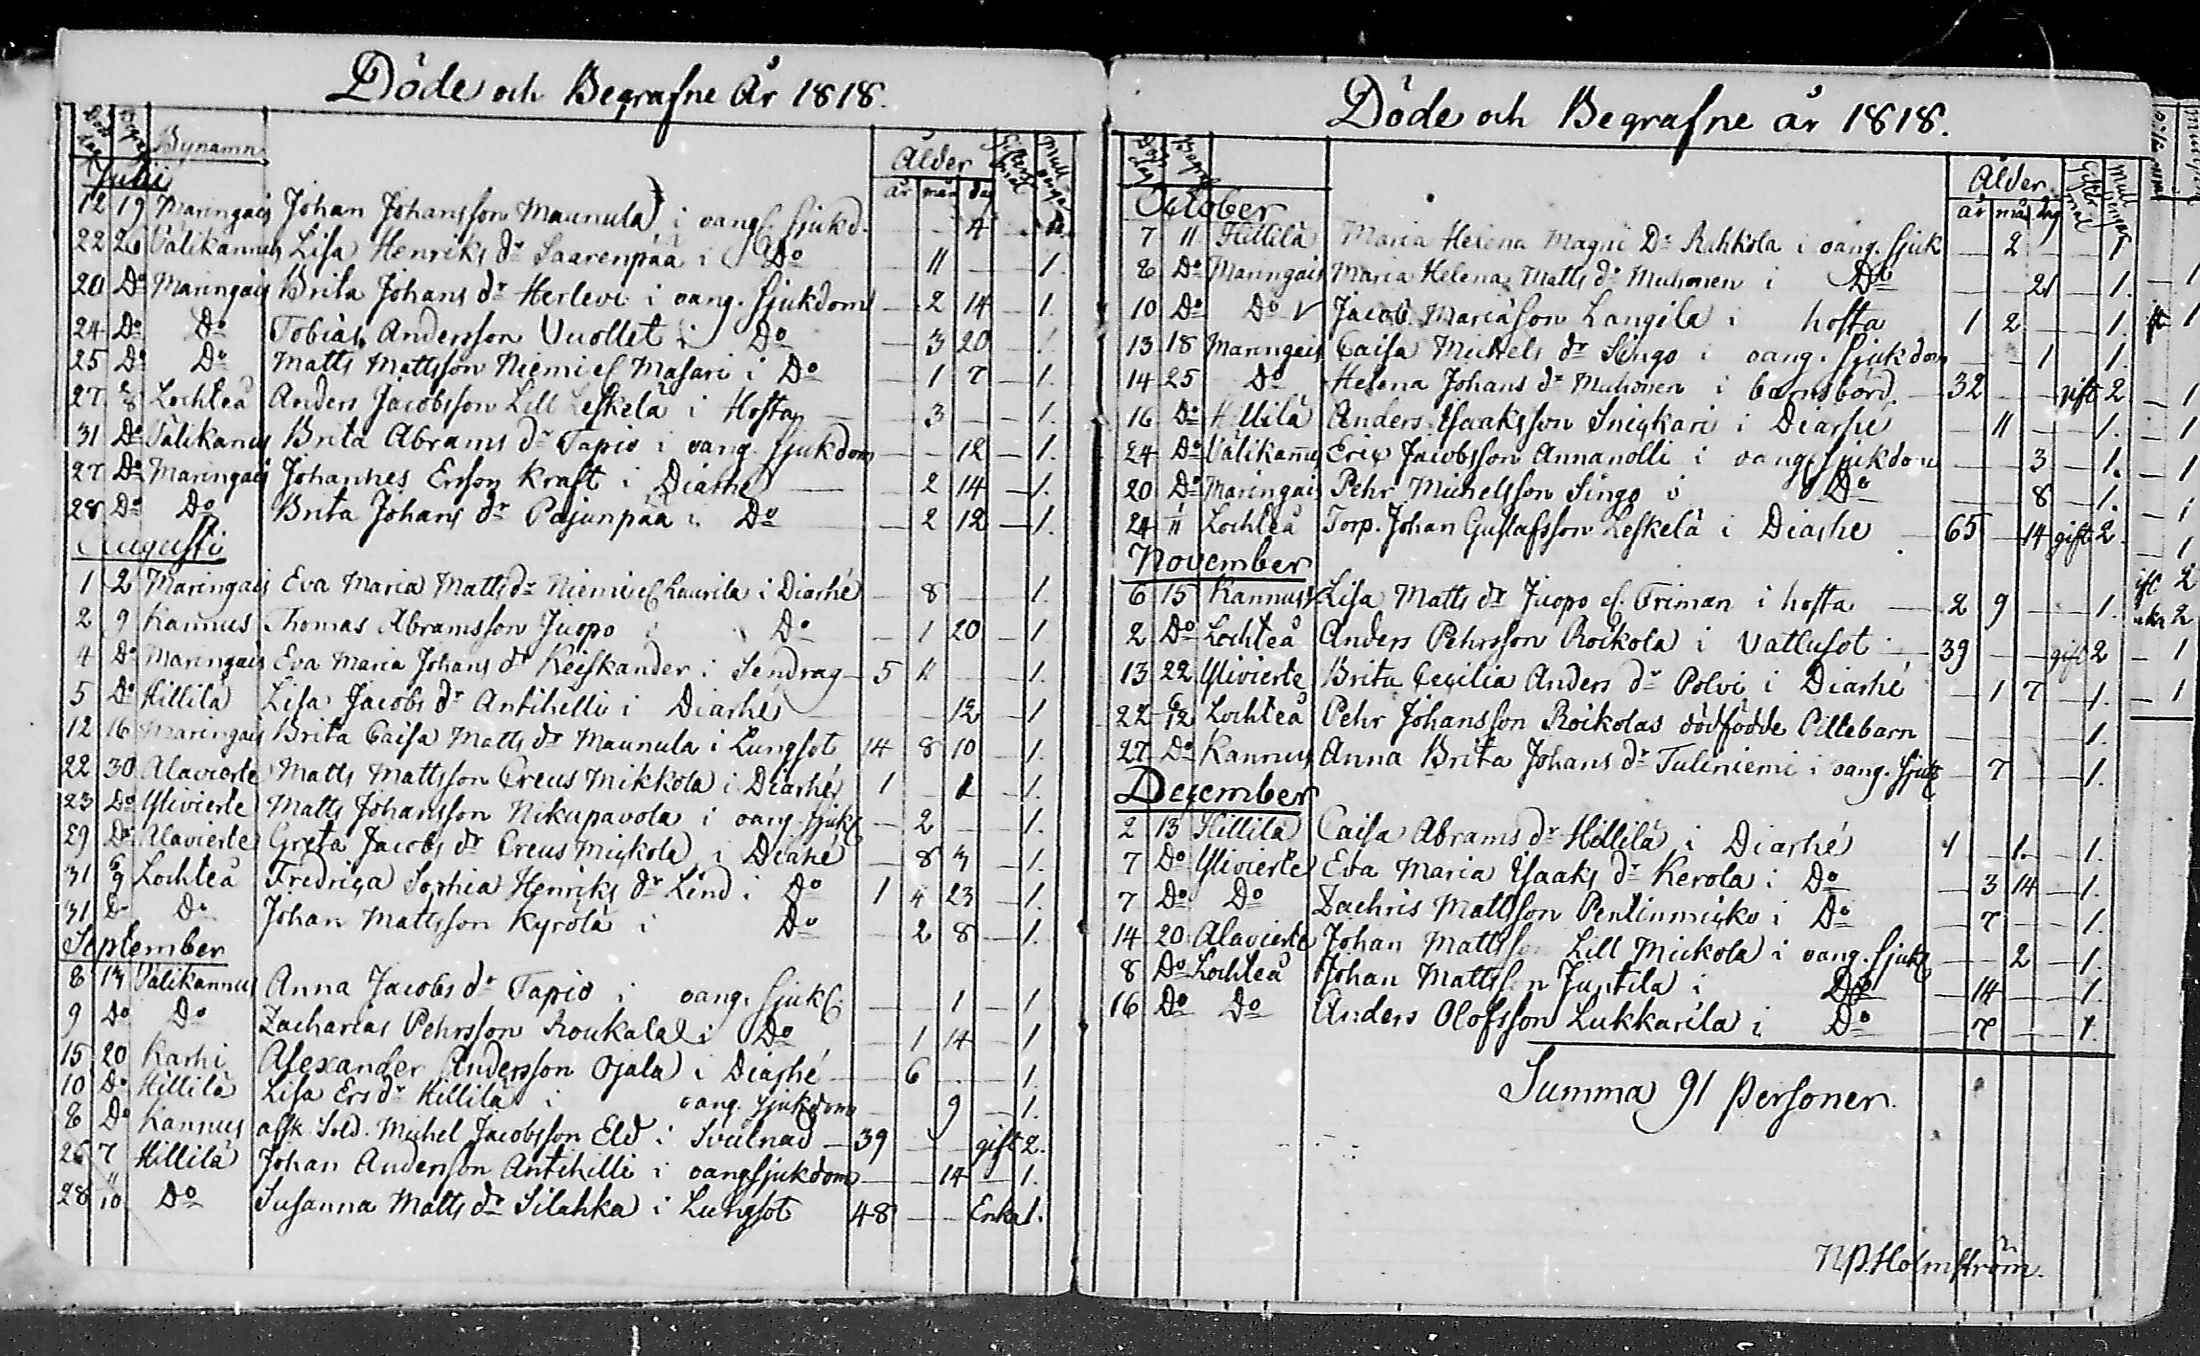 Döde och Begrafne År 1818.
Bynamn Ålder
år mån dag
Julii
12 19 Maringais Johan Johansson Maunula i oang. sjukd. 4
22 26 Välikannus Lisa Henriks dr Saarenpää i Do 11 1.
20 Do Maringais Brita Johans dr Herlevi i oang. sjukdom 2 14 1.
24 Do Do Tobias Andersson Vuollet i Do 3 20 1
25 Do Do Matts Mattsson Niemi el Masari i Do 1 7 1.
27 Lochteå Anders Jacobsson Lill Leskelä i Hosta 3 1.
31 Do Välikanus Brita Abrams dr Tapio i oang. sjukdom 12 1.
27 Do Maringais Johannes Ersson Kraft i Diarhé 2 14 1.
28 Do Do Brita Johans dr Pajunpää i Do 2 12 1.
Augusti
1 2 Maringais Eva Maria Matts dr Niemi el Laurila i Diarhé 8 1.
2 9 Kannus Thomas Abramsson Juopo i Do 1 20 1
4 Do Maringais Eva Maria Johans dr Keiskander i Sendrag 5 11 1.
5 Do Hillilä Lisa Jacobs dr Antihilli i Diarhé 12 1
12 16 Maringais Brita Caisa Matts dr Maunula i Lungsot 14 8 10 1.
22 30 Alavierte Matts Mattsson Creus Mikkola i Diarhé 1 1.
23 Do Ylivierte Matts Johansson Nikupavola i oang. sjuk 2 1.
29 Do Alavierte Greta Jacobs dr Creus Mickola i Diahé 8 3 1.
31 6/9 Lochteå Fredrica Sophia Henriks dr Lind i Do 1 4 23 1.
31 Do Do Johan Mattsson Kyrölä i Do 2 8 1.
September
8 13 Välikannus Anna Jacobs dr Tapio i oang. sjuk 1 1
9 Do Do Zacharias Pehrsson Roukala i Do 1 14 1
15 20 Karhi Alexander Andersson Ojala i Diarhé 6 1.
10 Do Hillilä Lisa Ers dr Hillilä i oang. sjukdom 9 1.
8 Do Kannus afsk. Sold. Michel Jacobsson Eld i Svulnad 39 gift 2.
26 7 Hillilä Johan Andersson Antihilli i oangsjukdom 14 1.
28 11/10 Do Susanna Matts dr Silahka i Lungsot 48 Enka 1.
Döde och Begrafne år 1818.
Ålder
år mån dag
October
7 11 Hillilä Maria Helena Magni Dr Rihkola i oang. sjuk 2 1
8 Do Maringais Maria Helena Matts dr Muhonen i Do 21 1.
10 Do Do Jacob Mariason Langila i hosta 1 2 1.
13 18 Maringais Caisa Michels dr Singo i oang. sjukdom 1 1.
14 25 Do Helena Johans dr Muhonen i barnsbörd. 32 gift 2
16 Do Hillilä Anders Isaaksson Snickari i Diarhé 11 1.
24 Do Välikannus Eric Jacobsson Annanolli i oang. sjukdom 3 1.
20 Do Maringais Pehr Michelsson Singo i Do 8 1.
24 Lochteå Torp. Johan Gustafsson Leskelä i Diarhe 65 14 gift 2
November
6 15 Kannus Lisa Matts dr Juopo el. Friman i hosta 2 9 1.
2 Do Lochteå Anders Pehrsson Roikola i Vattusot 39 gift 2
13 22 Ylivierte Brita Cecilia Anders dr Polvi i Diarhé 1 7 1.
22 6/12 Lochteå Pehr Johansson Roikolas dödfödde Pillebarn 1.
27 Do Kannus Anna Brita Johans dr Tuliniemi i oang. sjuk 7 1.
December
2 13 Hillilä Caisa Abrams dr Hillilä i Diarhé 1 1.
7 Do Ylivierte Eva Maria Isaaks dr Kerola i Do 3 14 1.
7 Do Do Zachris Mattsson Pentinmicko i Do 7 1.
14 20 Alavierte Johan Mattsson Lill Mickola i oang. sjuk 2 1.
8 Do Lochteå Johan Mattsson Juntila i Do 14 1.
16 Do Do Anders Olofsson Lukkarila i Do 7 1.
Summa 91 personer.
N.P. Holmström.